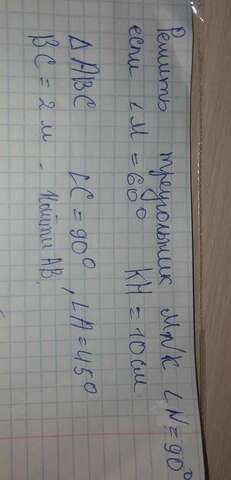 Решить треугольник MNK ∠N=90°
если ∠M=60° KH=10см
△ABC ∠C=90°, ∠A=45°
BC=2м - Найти AB.